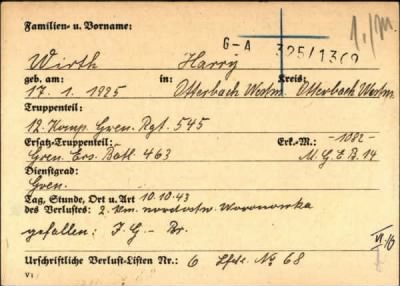 Familien- u. Vorname:
G-A 325/1302
1./M.
Wirth Harry
geb. am: in: Kreis:
17. 1. 1925 Otterbach Westm. Otterbach Westm.
Truppenteil:
12. Komp. Gren. Rgt. 545
Ersatz-Truppenteil: Erk.-M.: -1082-
Gren. Ers. Batl. 463 M.G.E.B. 14
Dienstgrad:
Gren.
Tag, Stunde, Ort u. Art 10.10.43
des Verlustes: 2. km. nordostw. Woronowka
gefallen: I. G. - Br.
VI/10
Urschriftliche Verlust-Listen Nr.: 6 Lfde. No 68
V 1